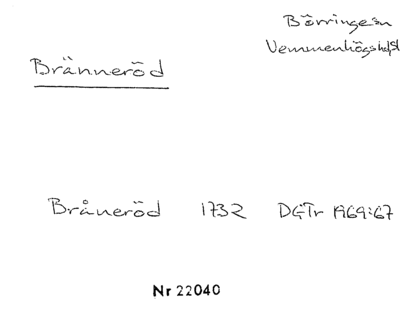 Börringe sn
Vemmenhögs hd, Sk
Bränneröd
Bråneröd 1732 DGTr 1969:67
Nr 22040